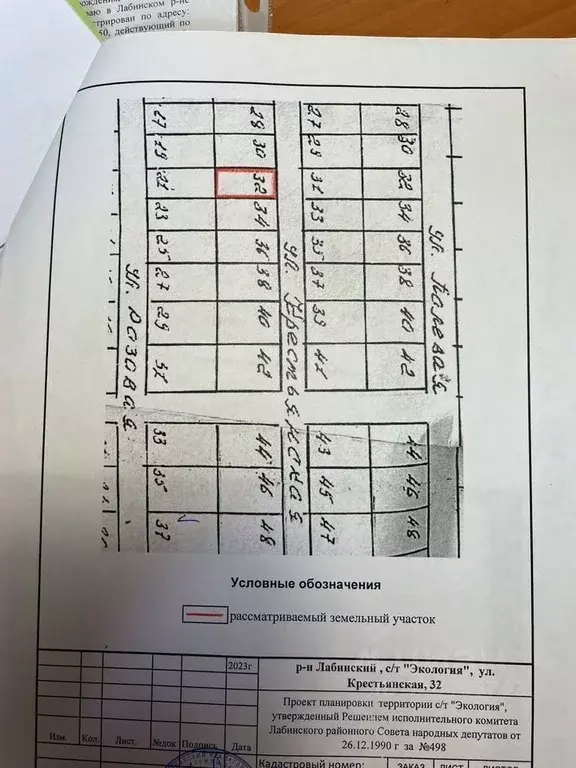 ю в Лабинском р-не
трирован по адресу:
50, действующий по
17 28 27 28
19 30 29 30
21 32 31 32
23 34 33 34
25 36 35 36
27 38 37 38
29 40 39 40
31 42 41 42
33 44 43 44
35 46 45 46
37 48 47 48
ул. Розовая
ул. Крестьянская
ул. Полевая
Условные обозначения
рассматриваемый земельный участок
2023г
р-н Лабинский , с/т "Экология", ул.
Крестьянская, 32
Проект планировки территории с/т "Экология",
утвержденный Решением исполнительного комитета
Лабинского районного Совета народных депутатов от
26.12.1990 г за №498
Изм. Кол. Лист. №док Подпись Дата
Кадастровый номер: ЗАКАЗ ЛИСТ ЛИСТОВ